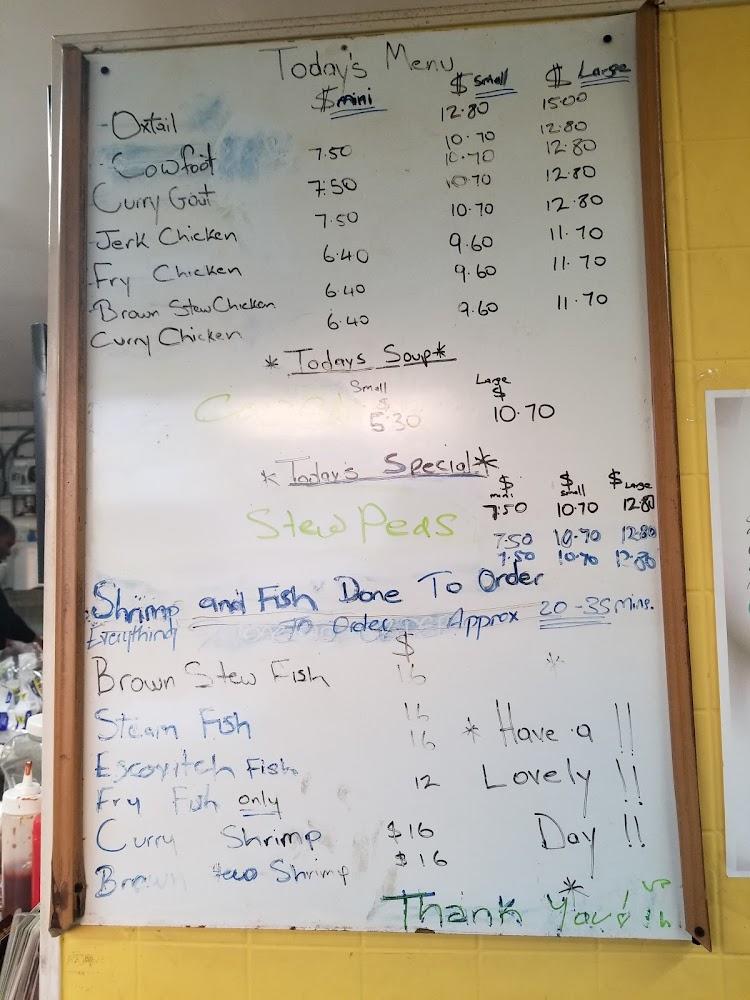 Today's Menu
$mini $small $Large
- Oxtail 12.80 15.00
- Cowfoot 7.50 10.70 12.80
Curry Gout 7.50 10.70 12.80
Jerk Chicken 7.50 10.70 12.80
Fry Chicken 6.40 9.60 11.70
Brown Stew Chicken 6.40 9.60 11.70
Curry Chicken 6.40 9.60 11.70
* Todays Soup *
Small Large
$ $
5.30 10.70
* Today's Special *
$ $ $
mini small Large
7.50 10.70 12.80
Stew Peas 7.50 10.70 12.80
7.50 10.70 12.80
Shrimp and Fish Done To Order
Everything To Order Approx 20-35 mins.
$
Brown Stew Fish 16
Steam Fish 16
Escovitch Fish 16
Fry Fish only 12
Curry Shrimp $16
Brown Stew Shrimp $16
* Have a !!
Lovely !!
Day !!
*
Thank You!